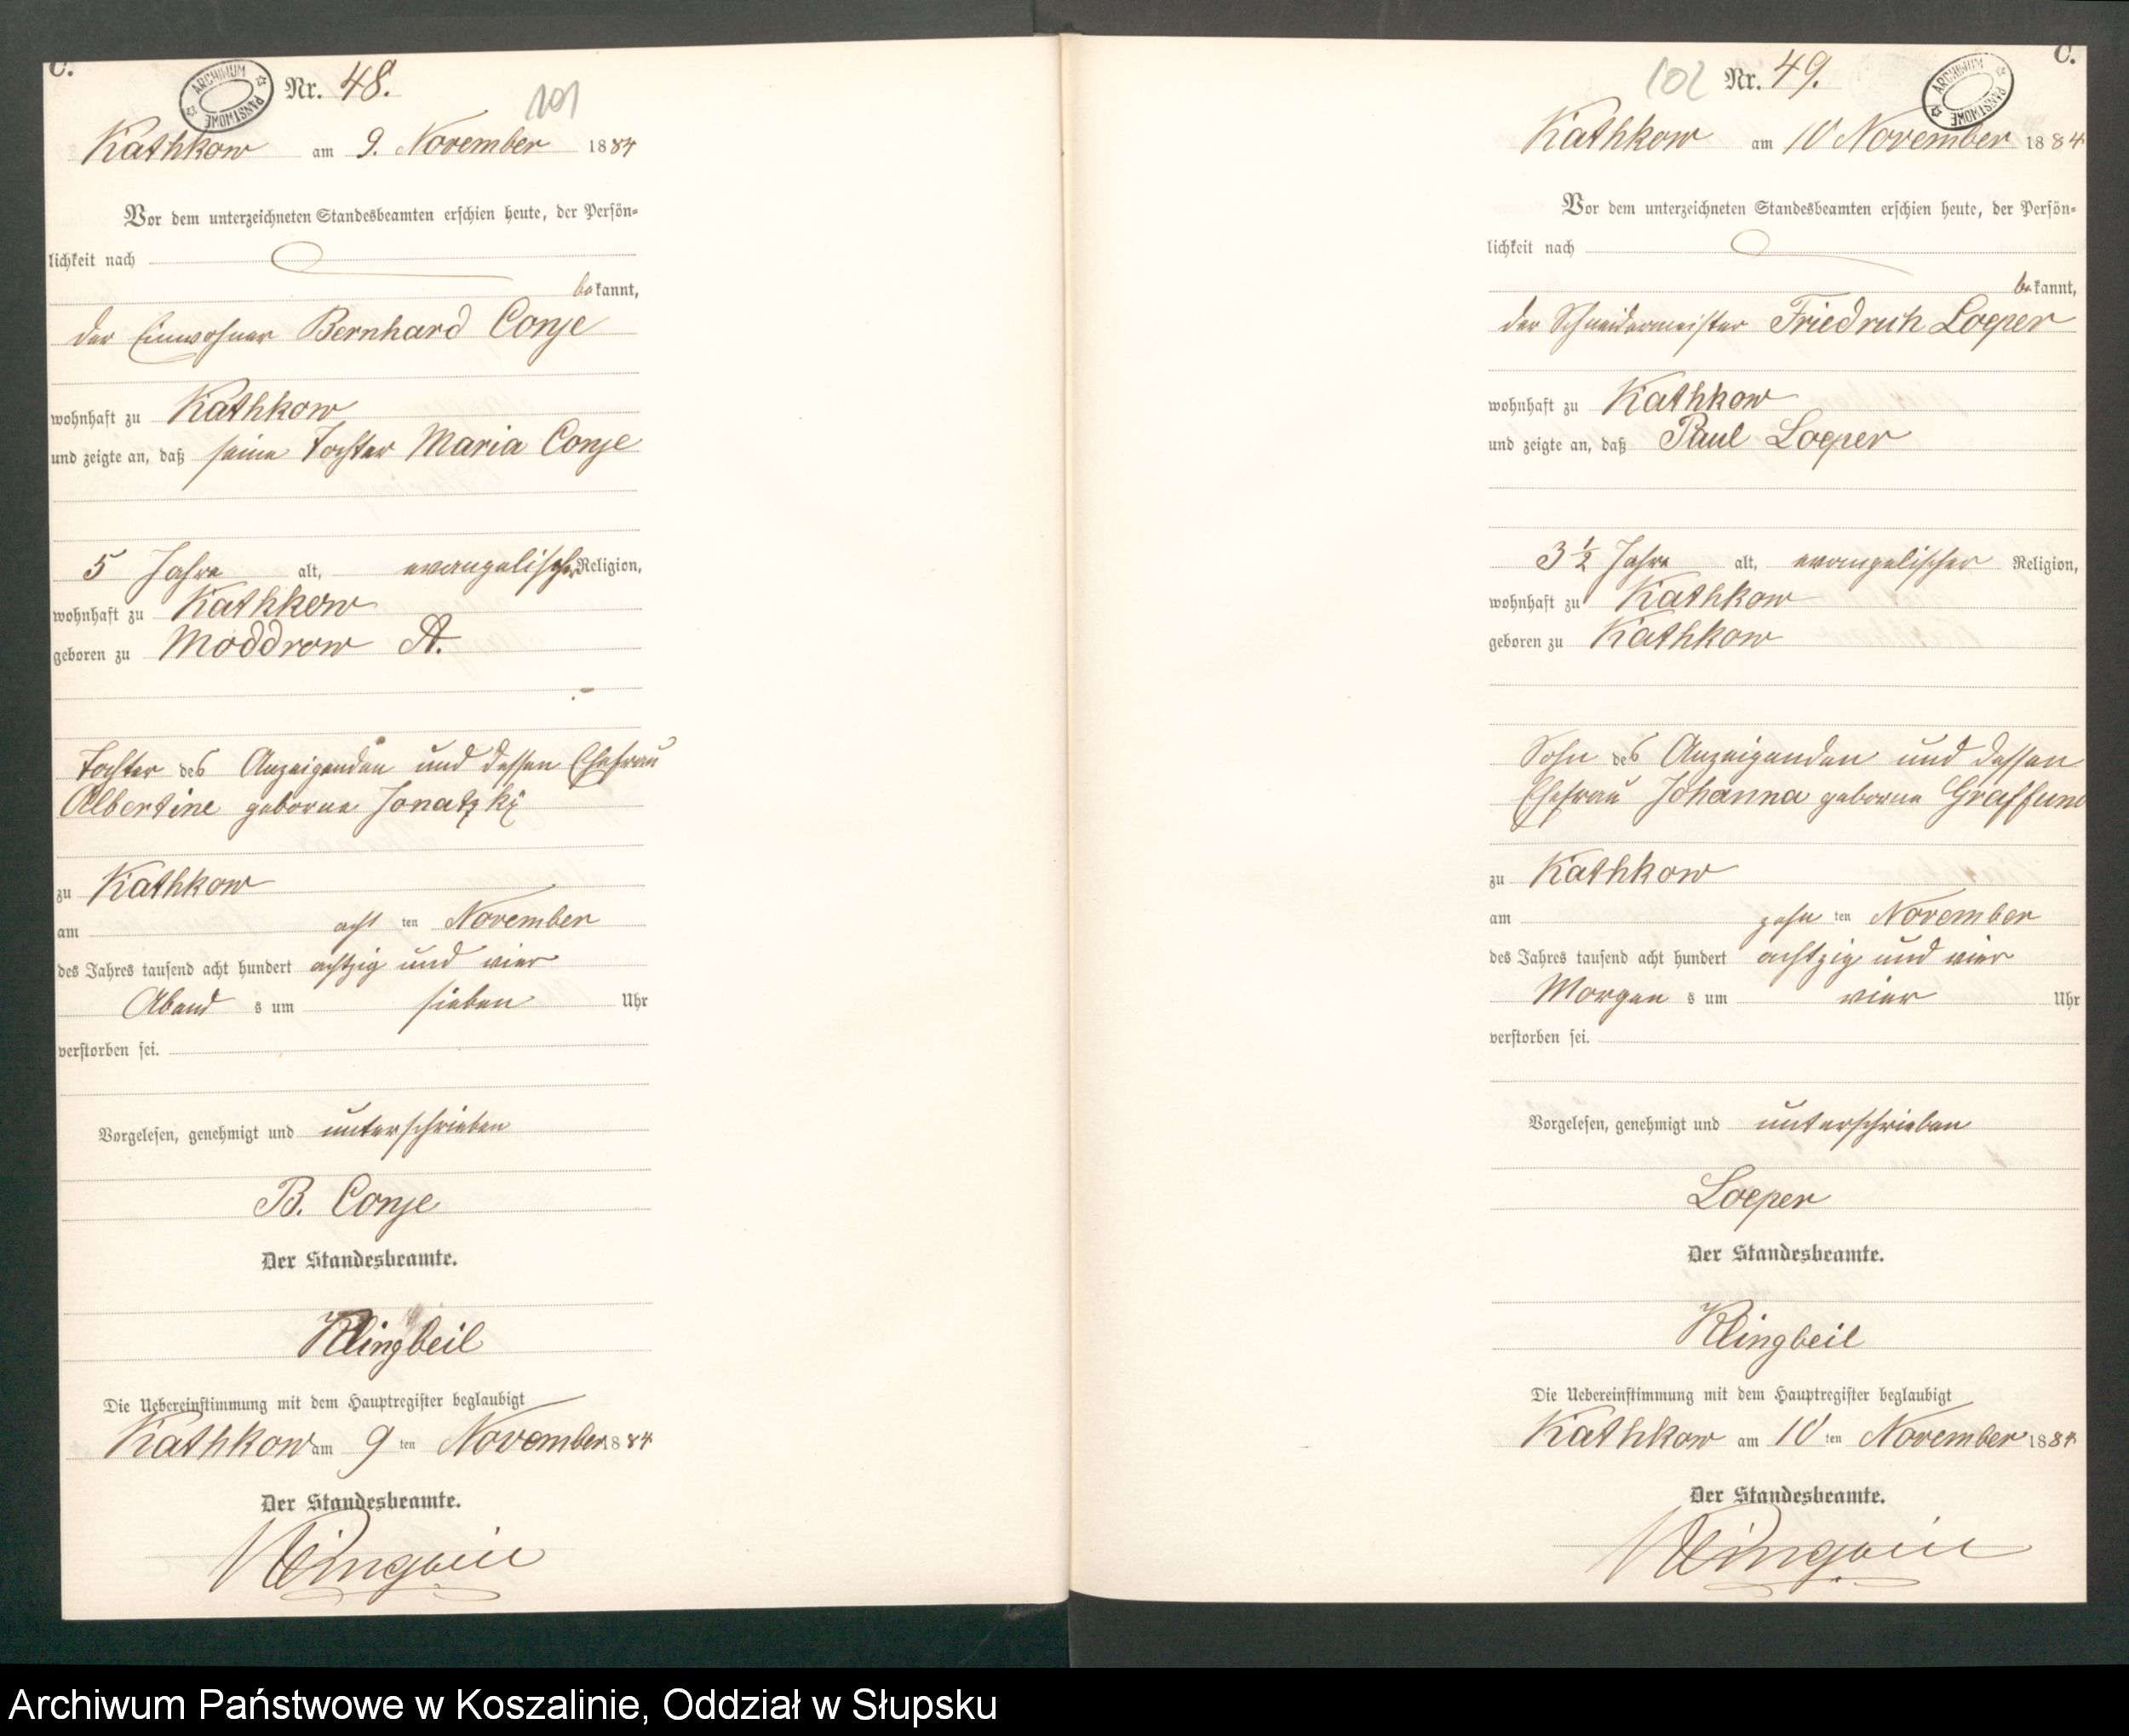 C.
ARCHIWUM PAŃSTWOWE
Nr. 48.
101
Kathkow am 9. November 1884
Vor dem unterzeichneten Standesbeamten erschien heute, der Persön-
lichkeit nach
bekannt,
der Einwohner Bernhard Conje
wohnhaft zu Kathkow
und zeigte an, daß seine Tochter Maria Conje
5 Jahre alt, evangelischer Religion,
wohnhaft zu Kathkow
geboren zu Moddrow A.
Tochter des Anzeigenden und dessen Ehefrau
Albertine geborne Jonatzki
zu Kathkow
am acht ten November
des Jahres tausend acht hundert achtzig und vier
Abend s um sieben Uhr
verstorben sei.
Vorgelesen, genehmigt und unterschrieben
B. Conje
Der Standesbeamte.
Klingbeil
Die Uebereinstimmung mit dem Hauptregister beglaubigt
Kathkow am 9 ten November 1884
Der Standesbeamte.
Klingbeil
C.
102
Nr. 49.
ARCHIWUM PAŃSTWOWE
Kathkow am 10 November 1884
Vor dem unterzeichneten Standesbeamten erschien heute, der Persön-
lichkeit nach
bekannt,
der Schneidermeister Friedrich Loeper
wohnhaft zu Kathkow
und zeigte an, daß Paul Loeper
3 ½ Jahre alt, evangelischer Religion,
wohnhaft zu Kathkow
geboren zu Kathkow
Sohn des Anzeigenden und dessen
Ehefrau Johanna geborne Graffund
zu Kathkow
am zehn ten November
des Jahres tausend acht hundert achtzig und vier
Morgen s um vier Uhr
verstorben sei.
Vorgelesen, genehmigt und unterschrieben
Loeper
Der Standesbeamte.
Klingbeil
Die Uebereinstimmung mit dem Hauptregister beglaubigt
Kathkow am 10 ten November 1884
Der Standesbeamte.
Klingbeil
Archiwum Państwowe w Koszalinie, Oddział w Słupsku